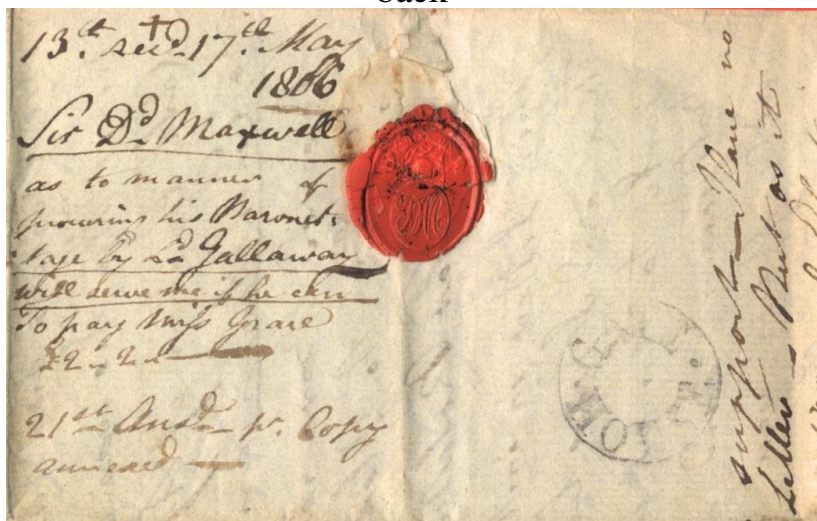 back
13th. recd. 17th. May
1806
Sir Dd. Maxwell
as to manner of
procuring his Baronet-
tage by Ld. Gallaway
will serve me if he can
To pay Miss Grace
£2..2..
21st Ansd. pr. Copy
annexed
support
Letters But as it